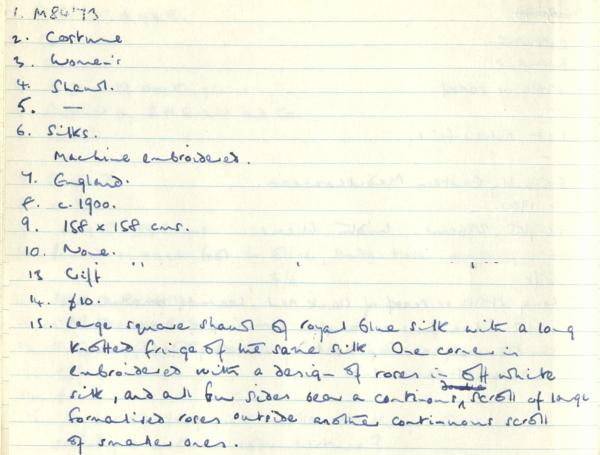 1. M84'73
2. Costume
3. Women's
4. Shawl.
5. —
6. Silks.
Machine embroidered.
7. England.
8. c. 1900.
9. 158 x 158 cms.
10. None.
13 Gift " " "
14. £10.
15. Large square shawl of royal blue silk with a long
knotted fringe of the same silk. One corner is
embroidered with a design of roses in off white
silk, and all four sides bear a continous double scroll of large
formalised roses outside another continuous scroll
of smaller ones.